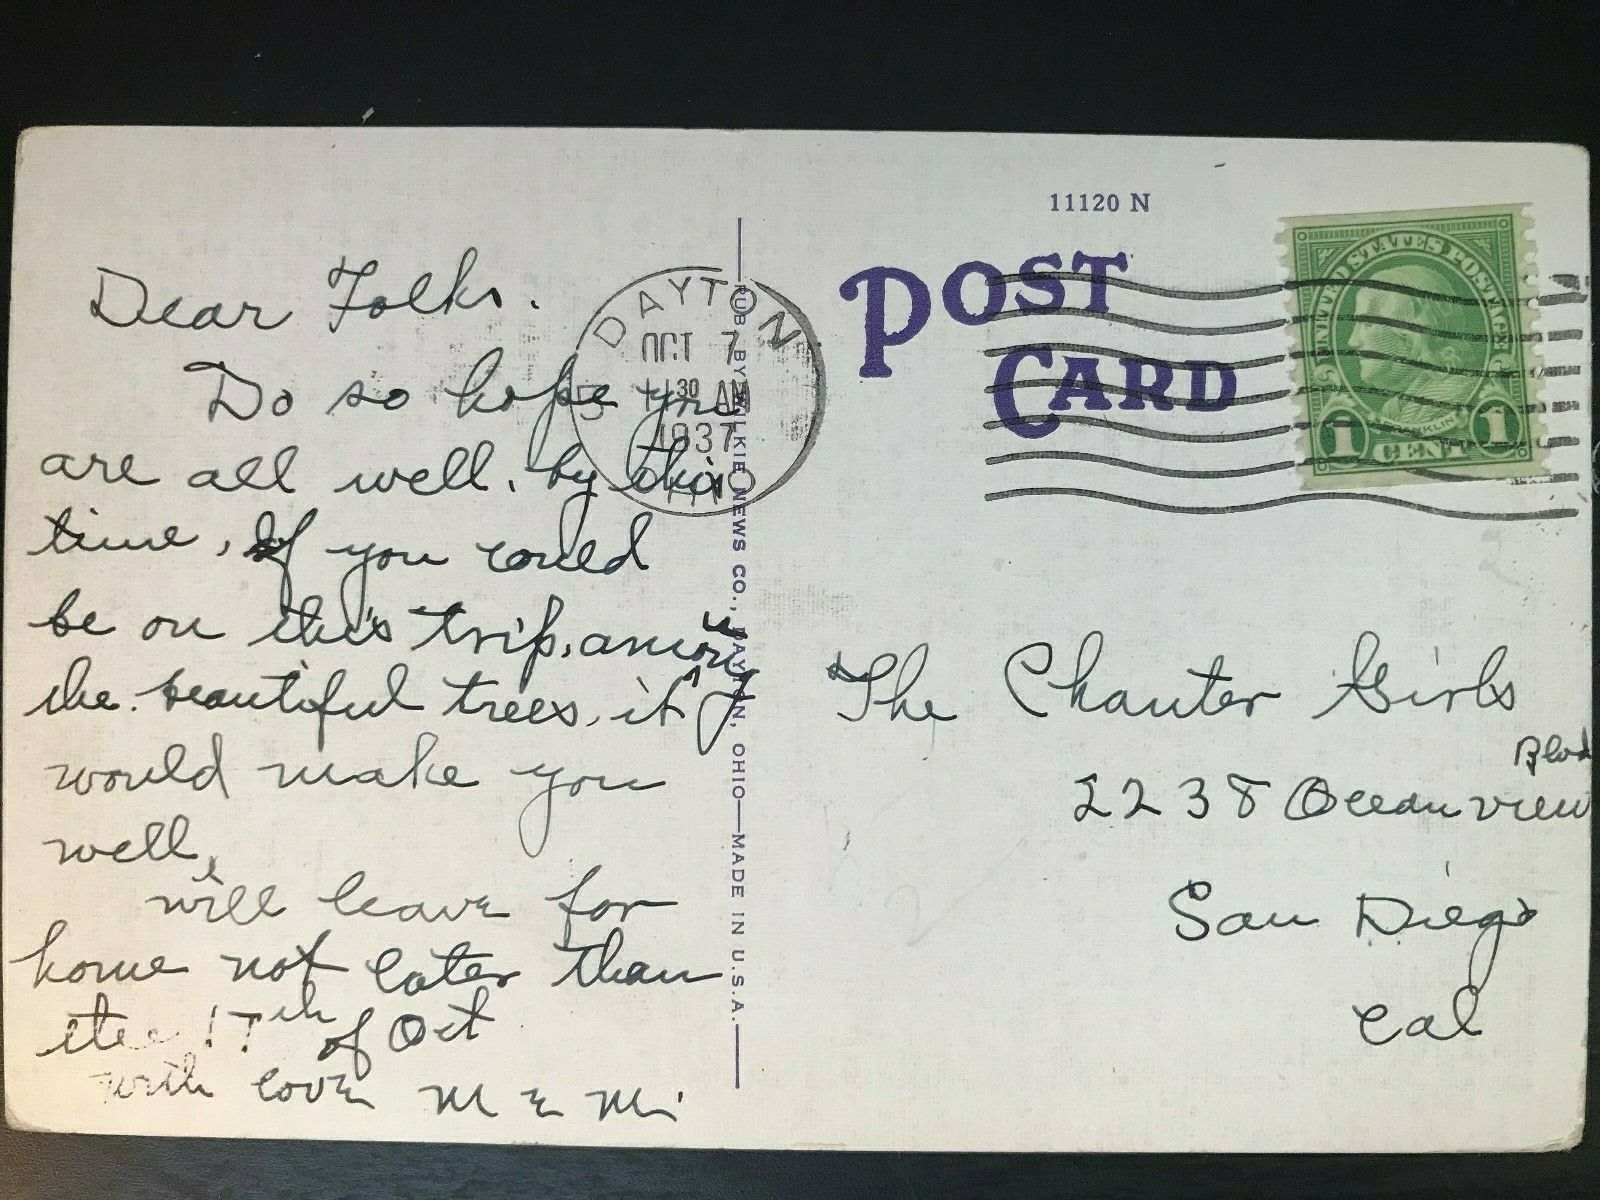 Dear Folks.
Do so hope you
are all well. by this
time, If you could
be on this trip. among
the beautiful trees, it
would make you
well,
will leave for
home not later than
the 17th of Oct
with love M & M
PUB. BY WILKIE NEWS CO., DAYTON, OHIO—MADE IN U.S.A.
DAYTON
OCT 7
11 30 AM
1937
OHIO
11120 N
POST
CARD
UNITED STATES POSTAGE
FRANKLIN
1 CENT 1
The Chanter Girls
Blvd
2238 Ocean view
San Diego
Cal